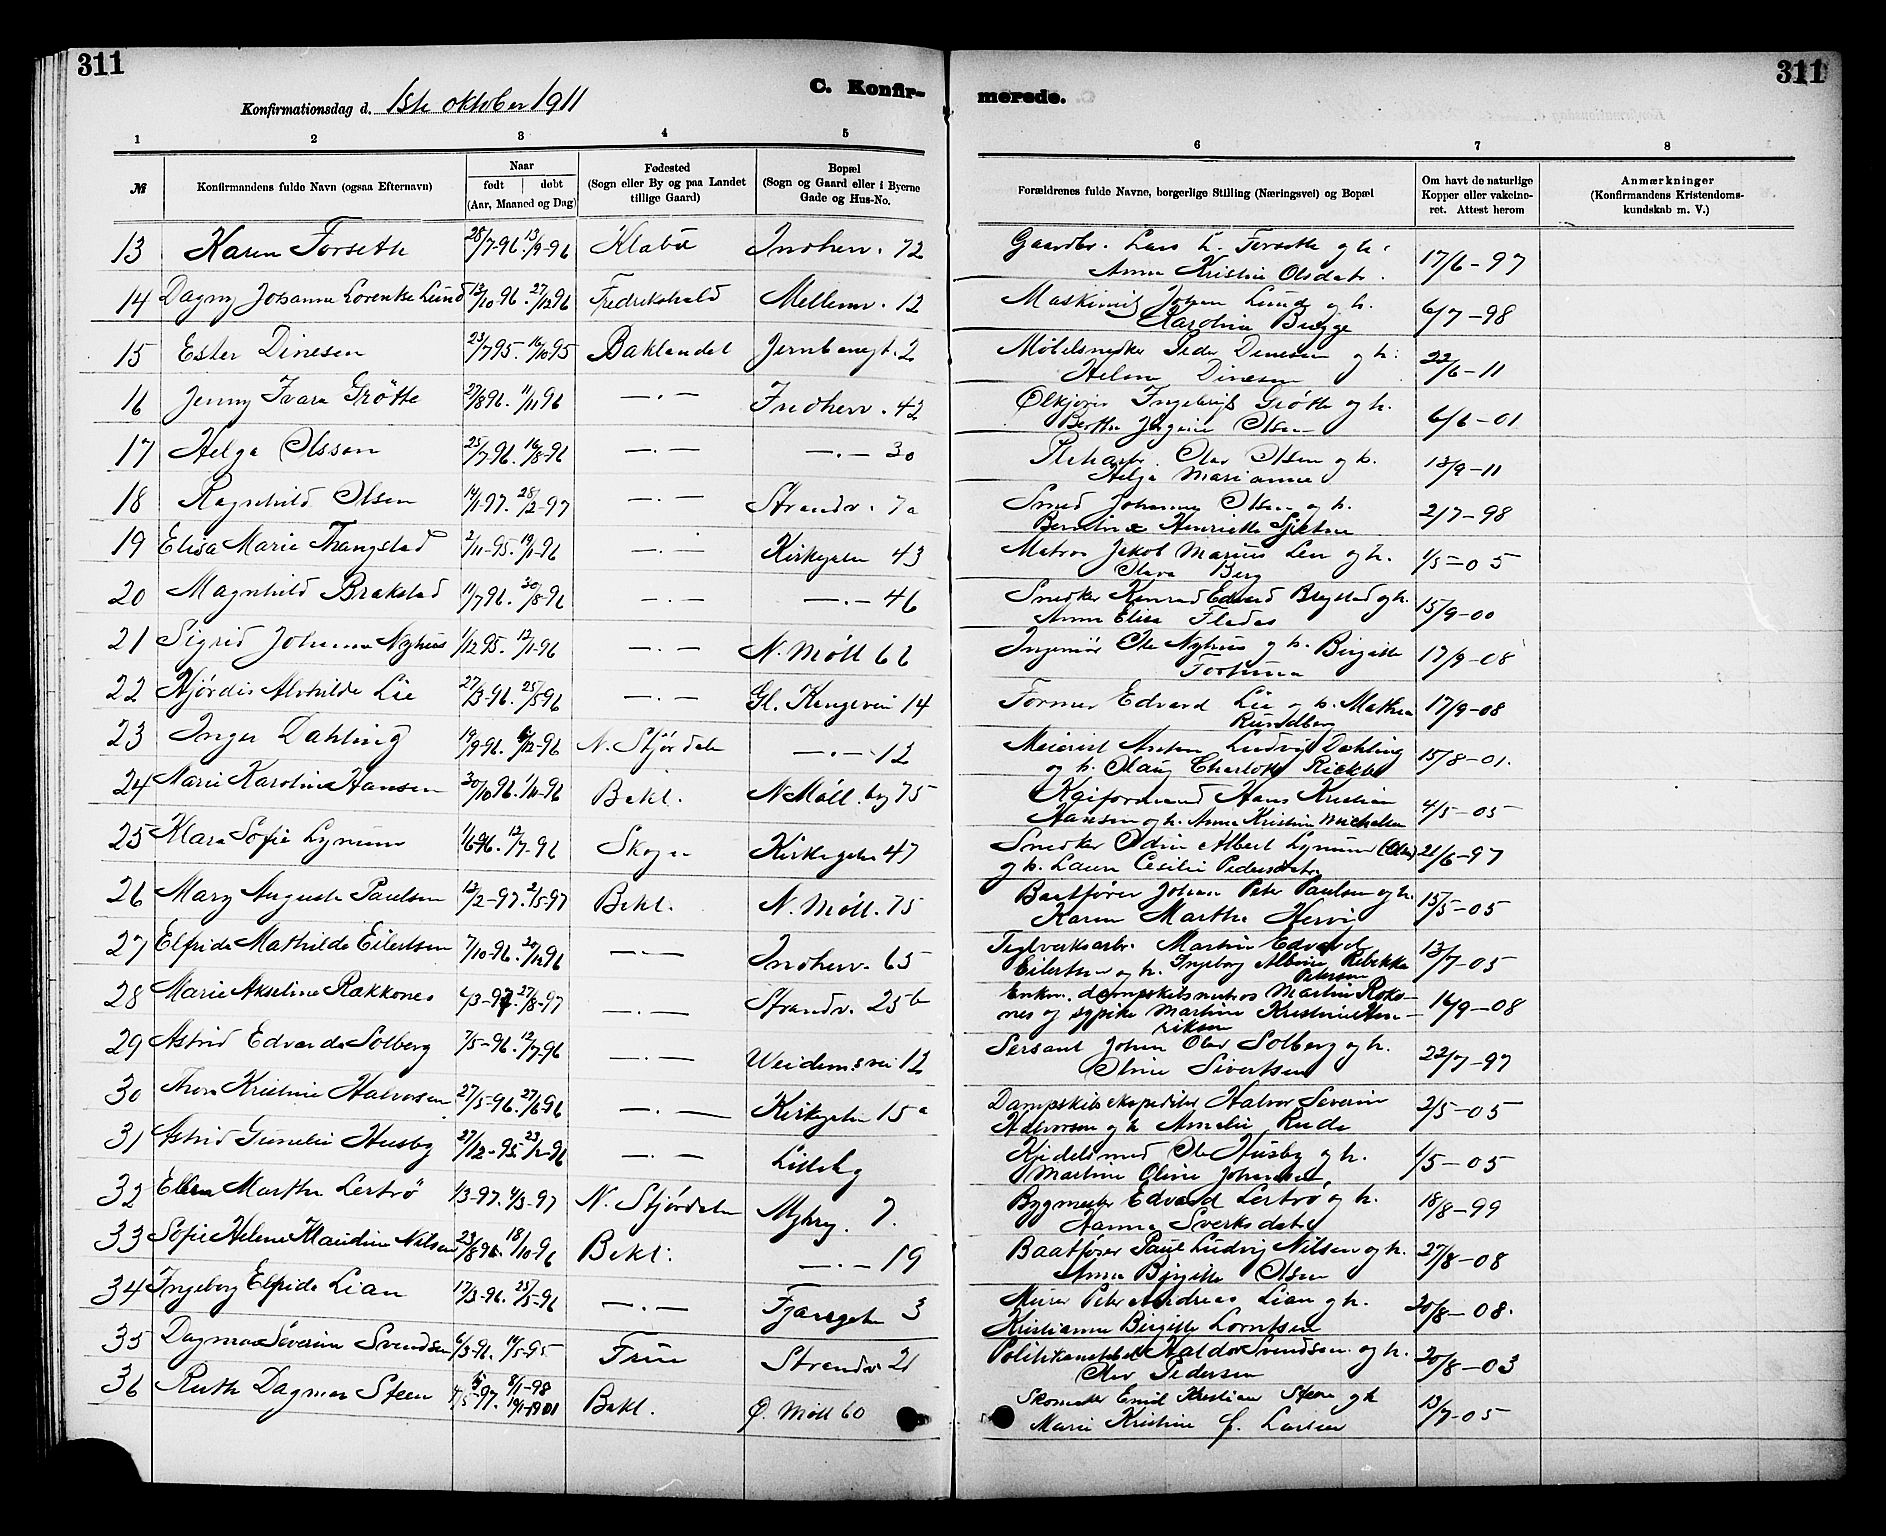 311
311
C. Konfir-
merede.
Konfirmationsdag d. 1ste oktober 1911
1 2 3 4 5 6 7 8
№ Konfirmandens fulde Navn (ogsaa Efternavn)
Naar
født døbt
(Aar, Maaned og Dag)
Fødested
(Sogn eller By og paa Landet
tillige Gaard)
Bopæl
(Sogn og Gaard eller i Byerne
Gade og Hus-No.
Forældrenes fulde Navne, borgerlige Stilling (Næringsvei) og Bopæl
Om havt de naturlige
Kopper eller vakcine-
ret. Attest herom
Anmærkninger
(Konfirmandens Kristendoms-
kundskab m. V.)
13 Karen Forseth 28/7-96. 13/9-96 Klæbu Indherv. 72 Gaardbr. Lars L. Forseth og h. 17/6-97
Anna Kristine Olsdatr.
14 Dagny Johanna Lorentse Lund 12/10 96. 27/12 96 Fredrikshald Mellemv. 12 Maskinist Johan Lund og h. 6/7-98
Karoline Bugge
15 Ester Dinesen 23/7 95. 16/10 95 Baklandet Jernbanegt. 2 Møbelsnedker Peder Dinesen og h. 22/6-11
Helene Dinesen
16 Jenny Ivara Grötte 27/8 96. 11/11 96 —.— Indherv. 42 Ølkjører Ingebrigt Grøtte og h. 6/6-01
Berthe Jørgine Olsen
17 Helga Olsson 25/7-96. 16/8-96 —.— —.— 30 Olav Olsen og h. 13/9-11
Helga Marianne
18 Ragnhild Olsen 14/1-97. 28/2-97 —.— Strandv. 7a Smed Johannes Olsen og h. 2/7-98
Henriette
19 Elisa Marie Trangstad 2/11-95. 19/1-96 —.— Kirkegaten 43 Matros Jakob Marius Lein og h. 1/5-05
Olava Berg
20 Magnhild Brekstad 11/7 96. 30/8-96 —.— —.— 46 Snedker Konrad Edvard Brekstad og h. 15/9-00
Anna Elisa
21 Sigrid Johanna Nyhus 1/12 95. 12/1-96 —.— N. Møll 66 Ingeniør Ole Nyhus og h. Birgitte 17/9-08
Fortuna
22 Hjördis Alvhilde Lie 27/3-96. 25/5-96 —.— Gl. Kongevei 14 Former Edvard Lie og h. Mathea 17/9-08
Rundberg
23 Inga Dahling 19/9-96. 6/12-96 N. Stjørdalen —.— 12 Meierist Anton Ludvig Dahling 15/8-01.
og h. Olaug Charlotte
24 Marie Karoline Hansen 30/10 96. 1/11-96 Bakl. N. Møll. bg 75 Kaiformand Hans Kristian 4/5-05
Hansen og h. Anna Kristine Michalsen
25 Klara Sofie Lynum 1/6-96. 12/7-96 Skogn Kirkegaten 47 Snedker Odin Albert Lynum 21/6-97
og h. Laura Cecilie Pedersdatr.
26 Mary Augusta Paulsen 12/2-97. 2/5-97 Bakl. N. Møll. 75 Baatfører Johan Peter Paulsen og h. 15/5-05
Karen Martha
27 Elfrida Mathilde Eilertsen 7/10-96. 20/12 96 —.— Indherv. 65 Teglverksarbr. Martin Edvard 13/7-05
Eilertsen og h. Ingeborg Albine Rebekka
Petersen
28 Marie Akseline Rækkones 6/3-97. 27/8-97 —.— Strandv. 25b Enkm. dampskibsmatros Martin Roko- 16/9-08
nes og Martine Kristine Hen-
riksen
29 Astrid Edvarda Solberg 7/5-96. 12/7-96 —.— Weidemsvei 12 Sersant Johan Olav Solberg og h. 22/7-97
Oline Sivertsen
30 Thora Kristine Halvorsen 27/5-96. 27/6-96 —.— Kirkegaten 15a Dampskibsekspeditør Halvor Severin 2/5-05
Halvorsen og h Amalie Rude
31 Astrid Gunelie Husby 27/12-95. 23/2-96 —.— Lilleby Kjedelsmed Ole Husby og h. 1/5-05
Martine Oline Johansen
32 Ellen Martha Lertrö 1/3-97. 4/3-97 N. Stjørdalen Myhrg. 7. Bygmester Edvard Lertrø og h. 18/8-99
Hanna Sverksdatr
33 Sofie Helene Klaudine Nilsen 23/8 96. 18/10-96 Bakl. —.— 19 Baatfører Paul Ludvig Nilsen og h. 27/8-08
Anna Birgitte Olsen
34 Ingeborg Elfrida Lian 17/3-96. 25/5-96 —.— Fjæregaten 3 Murer Peter Andreas Lian og h. 20/8-08.
Kristianna Bergitte Lorntsen
35 Dagmar Severine Svendsen 6/3-96. 14/5-95 Frue Strandv. 21 Politikonstabel Haldor Svendsen og h. 20/8-03
Pedersen
36 Ruth Dagmar Steen 8/1-98 Bakl. Ø. Møll 60 Skomaker Emil Kristian Steen og h 13/7-05
Marie Kristine f. Larsen